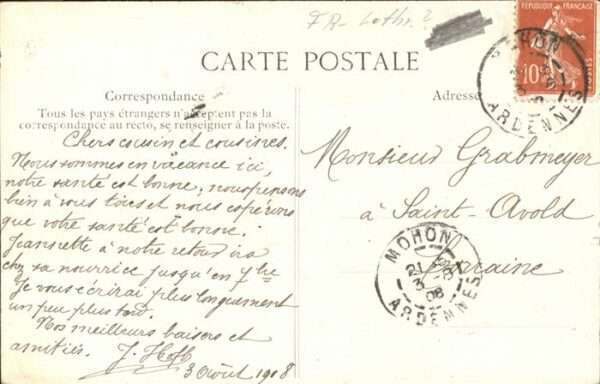 FR- Lothr. ?
REPUBLIQUE FRANÇAISE
10
POSTES
MOHON
ARDENNES
CARTE POSTALE
Correspondance
Tous les pays étrangers n'acceptent pas la
correspondance au recto, se renseigner à la poste.
Adresse
Chers cousin et cousines.
Nous sommes en vacance ici,
notre santé est bonne, nous pensons
bien à vous tous et nous espérons
que votre santé est bonne.
Jeannette à notre retour ira
chez sa nourrice jusqu'en 7bre
Je vous écrirai plus longuement
un peu plus tard.
Nos meilleurs baisers et
amitiés. J. Hoff
3 Août 1908
Monsieur Grabmeyer
à Saint-Avold
Lorraine
MOHON
3
08
ARDENNES